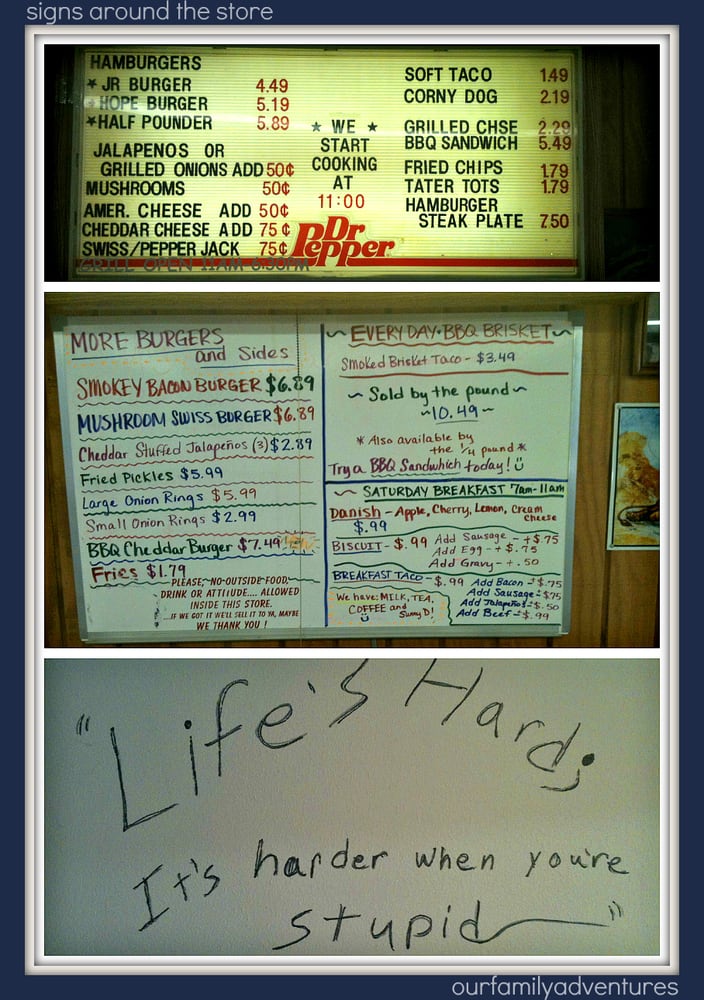 signs around the store
HAMBURGERS
★ JR BURGER 4.49
HOPE BURGER 5.19
★HALF POUNDER 5.89
JALAPENOS OR
GRILLED ONIONS ADD 50¢
MUSHROOMS 50¢
AMER. CHEESE ADD 50¢
CHEDDAR CHEESE ADD 75¢
SWISS/PEPPER JACK 75¢
GRILL OPEN 11AM 6:30PM
★ WE ★
START
COOKING
AT
11:00
Dr
Pepper
SOFT TACO 1.49
CORNY DOG 2.19
GRILLED CHSE 2.29
BBQ SANDWICH 5.49
FRIED CHIPS 1.79
TATER TOTS 1.79
HAMBURGER
STEAK PLATE 7.50
MORE BURGERS
and Sides
SMOKEY BACON BURGER $6.89
MUSHROOM SWISS BURGER $6.89
Cheddar Stuffed Jalapeños (3) $2.89
Fried Pickles $5.99
Large Onion Rings $5.99
Small Onion Rings $2.99
BBQ Cheddar Burger $7.49
Fries $1.79
PLEASE, NO OUTSIDE FOOD,
DRINK OR ATTITUDE.... ALLOWED
INSIDE THIS STORE.
...IF WE GOT IT WE'LL SELL IT TO YA, MAYBE
WE THANK YOU !
~ EVERY DAY·BBQ BRISKET ~
Smoked Brisket Taco - $3.49
~ Sold by the pound ~
~10.49~
* Also available by
the 1/4 pound *
Try a BBQ Sandwhich today!
~ SATURDAY BREAKFAST 7am-11am
Danish - Apple, Cherry, Lemon, Cream
Cheese
$.99
BISCUIT - $.99 Add Sausage - +$.75
Add Egg - +$.75
Add Gravy - +.50
BREAKFAST TACO - $.99 Add Bacon - $.75
Add Sausage - $.75
Add Jalapeños - $.50
Add Beef - $.99
We have: MILK, TEA,
COFFEE and
Sunny D!
"Life's Hard;
It's harder when you're
stupid"
ourfamilyadventures